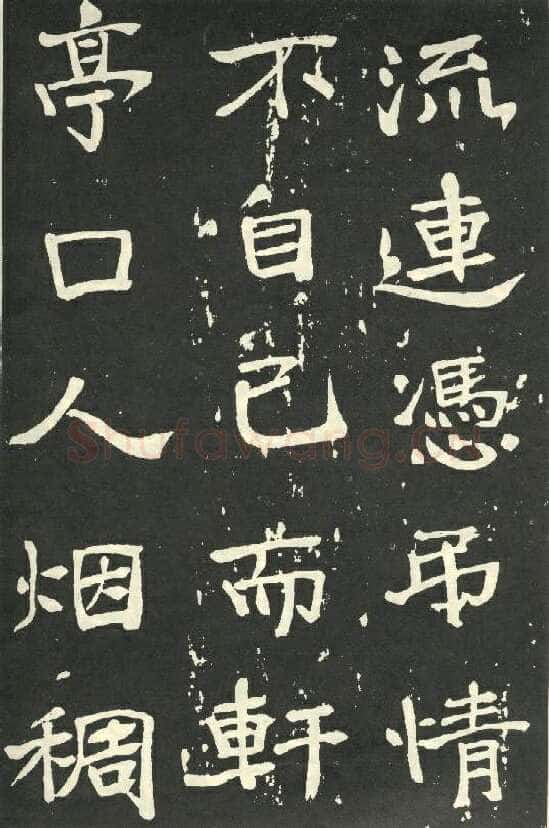 流連憑弔情
不自已而軒
亭口人烟稠
Shufawang.cn